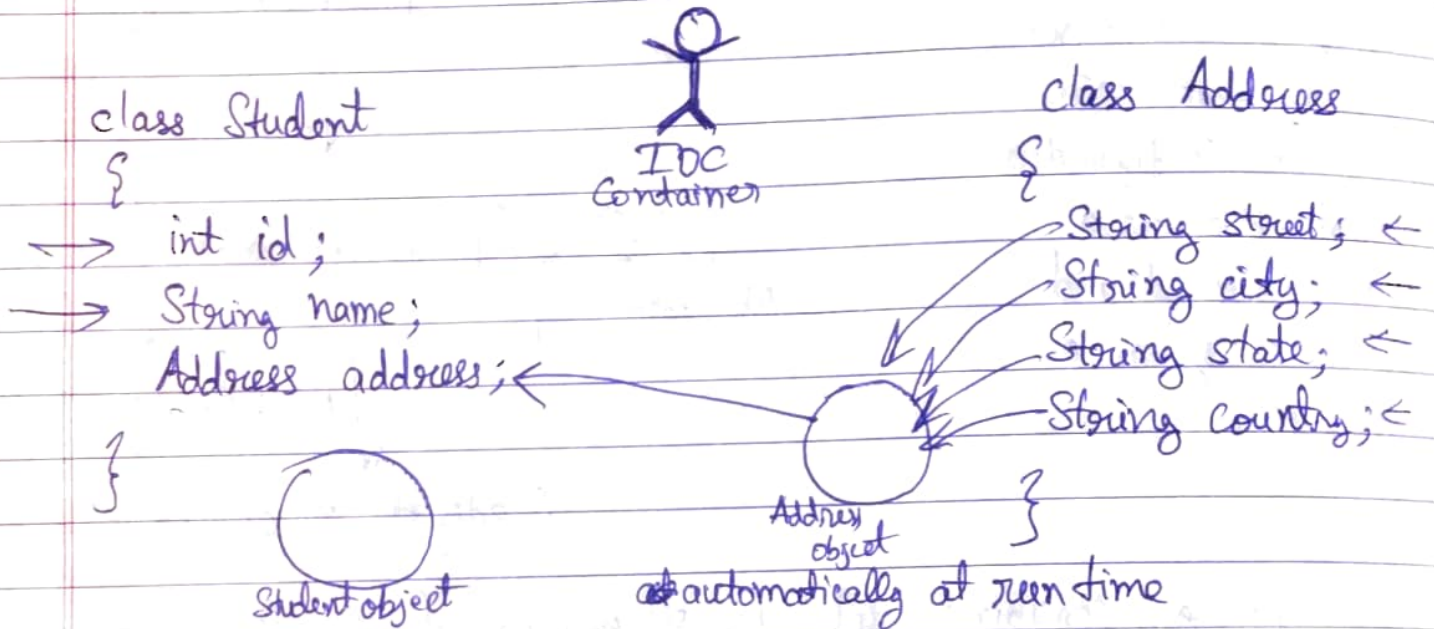 class Student
{
int id;
String name;
Address address;
}
Student object
IOC
Container
class Address
{
String street;
String city;
String state;
String country;
}
Address
object
automatically at run time